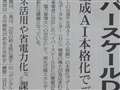 バースケールD
生成AI本格化で
来活用や省電力化、課